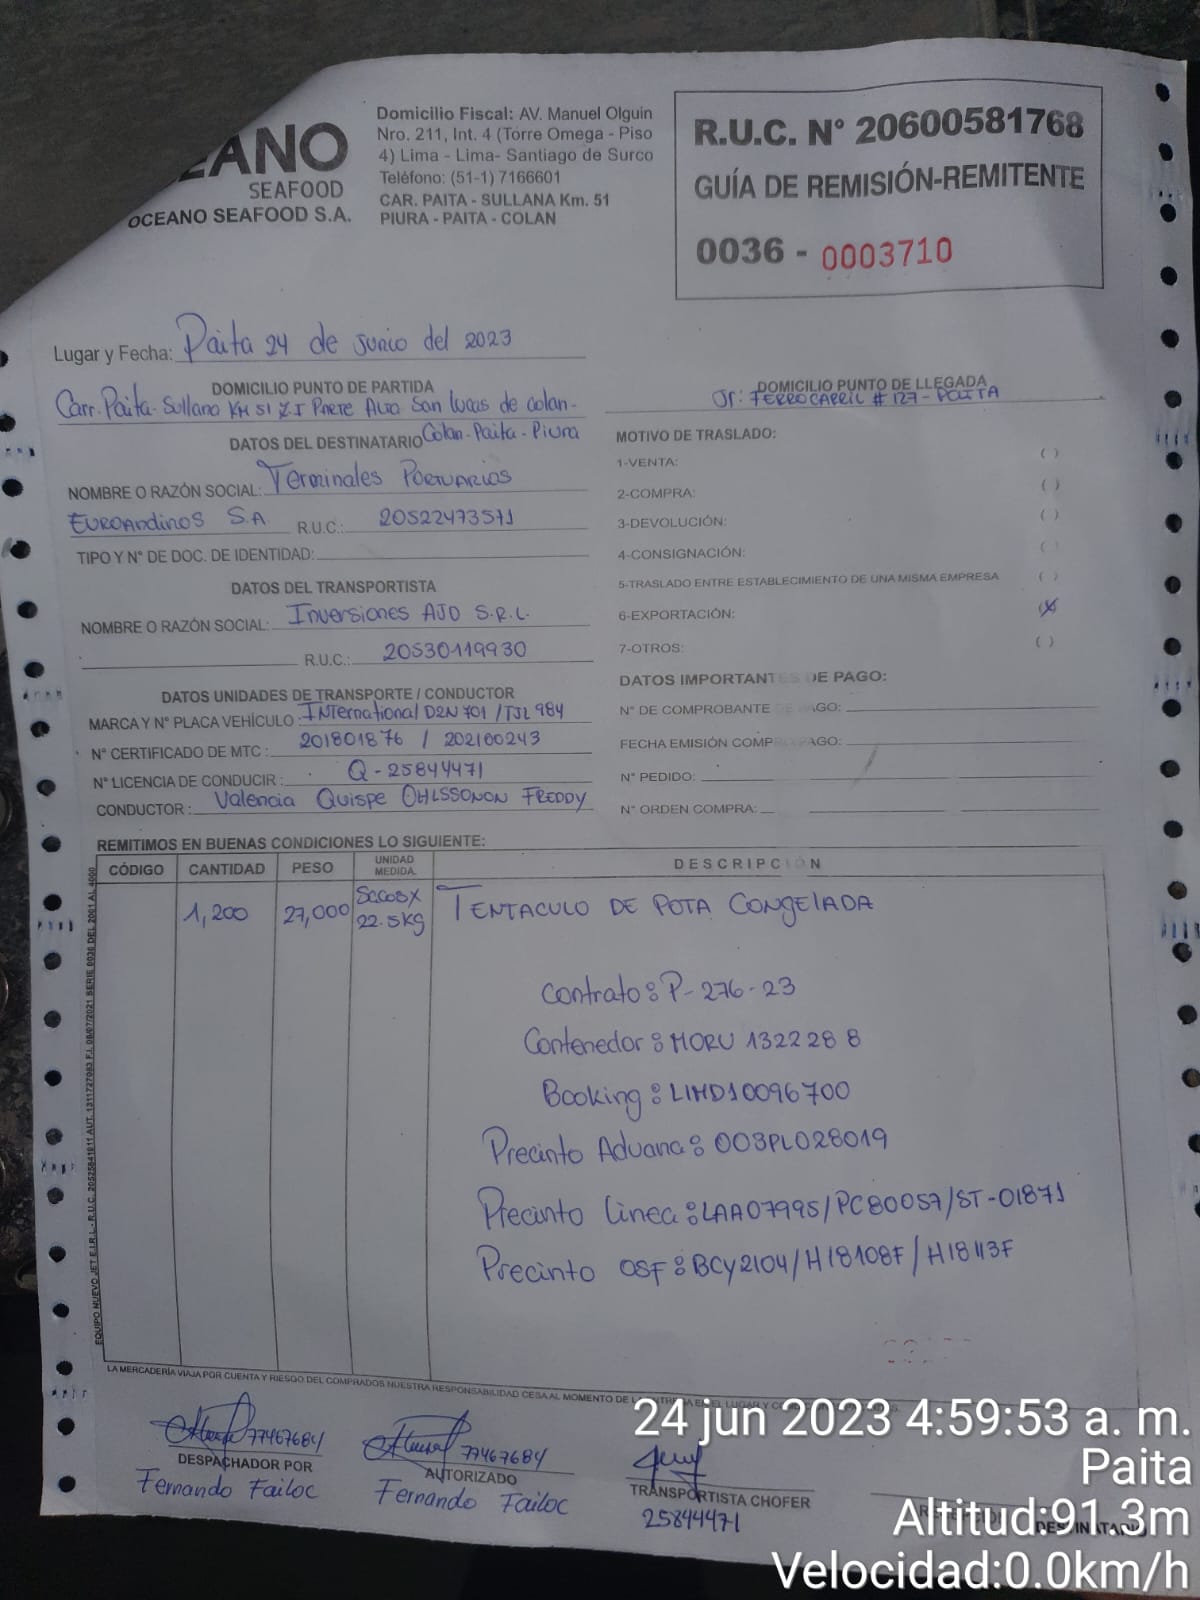 EANO
SEAFOOD
OCEANO SEAFOOD S.A.
Domicilio Fiscal: AV. Manuel Olguin
Nro. 211, Int. 4 (Torre Omega - Piso
4) Lima - Lima- Santiago de Surco
Teléfono: (51-1) 7166601
CAR. PAITA - SULLANA Km. 51
PIURA - PAITA - COLAN
R.U.C. N° 20600581768
GUÍA DE REMISIÓN-REMITENTE
0036 - 0003710
Lugar y Fecha: Paita 24 de Junio del 2023
DOMICILIO PUNTO DE PARTIDA
Carr. Paita-Sullana KM 51 Z.I Parte Alto San Lucas de Colan-
Colan-Paita-Piura
DOMICILIO PUNTO DE LLEGADA
Jr: FERROCARRIL # 127-
DATOS DEL DESTINATARIO
NOMBRE O RAZÓN SOCIAL: Terminales Portuarios
Euroandinos S.A R.U.C.: 20522473571
TIPO Y N° DE DOC. DE IDENTIDAD:
DATOS DEL TRANSPORTISTA
NOMBRE O RAZÓN SOCIAL: Inversiones AJD S.R.L.
R.U.C.: 20530119930
DATOS UNIDADES DE TRANSPORTE / CONDUCTOR
MARCA Y N° PLACA VEHÍCULO: International D2N 701 / TJL 984
N° CERTIFICADO DE MTC: 201801876 / 202100243
N° LICENCIA DE CONDUCIR: Q-25844471
CONDUCTOR: Valencia Quispe OHLSSONON FREDDY
MOTIVO DE TRASLADO:
1-VENTA: ( )
2-COMPRA: ( )
3-DEVOLUCIÓN: ( )
4-CONSIGNACIÓN: ( )
5-TRASLADO ENTRE ESTABLECIMIENTO DE UNA MISMA EMPRESA ( )
6-EXPORTACIÓN: (X)
7-OTROS: ( )
DATOS IMPORTANTES DE PAGO:
N° DE COMPROBANTE DE PAGO:
FECHA EMISIÓN COMP PAGO:
N° PEDIDO:
N° ORDEN COMPRA:
REMITIMOS EN BUENAS CONDICIONES LO SIGUIENTE:
CÓDIGO CANTIDAD PESO UNIDAD MEDIDA. DESCRIPCIÓN
1,200 27,000 Sacos X 22.5KG TENTACULO DE POTA CONGELADA
Contrato: P-276-23
Contenedor: MORU 132228 8
Booking: LIMD10096700
Precinto Aduana: 003PL028019
Precinto Linea: LAA07995/PC80057/ST-01871
Precinto OSF: BCY2104/H18108F/H18113F
EQUIPO NUEVO JET E.I.R.L - R.U.C. 20525841911 AUT. 1311727083 F.I. 08/07/2021 SERIE 0036 DEL 2001 AL 4000
LA MERCADERÍA VIAJA POR CUENTA Y RIESGO DEL COMPRADOS NUESTRA RESPONSABILIDAD CESA AL MOMENTO DE
77467684
DESPACHADOR POR
Fernando Failoc
77467684
AUTORIZADO
Fernando Failoc
TRANSPORTISTA CHOFER
25844471
DESTINATARIO
24 jun 2023 4:59:53 a. m.
Paita
Altitud:91.3m
Velocidad:0.0km/h